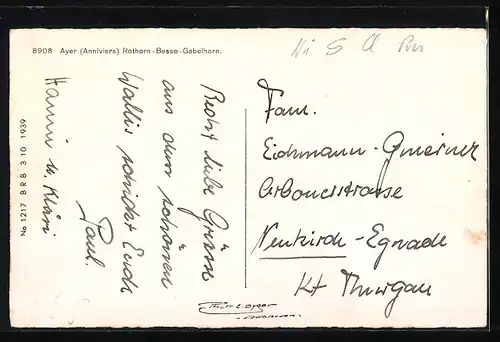 8908 Ayer (Anniviers) Rothorn-Besso-Gabelhorn.
No 1217 B R B 3 10 1939
Recht liebe Grüsse
aus dem schönen
Wallis schickt Euch
Paul.
Hanni u. Kläri
Fam.
Eichmann-Gmeiner
Arbonerstrasse
Neukirch-Egnach
Kt Thurgau